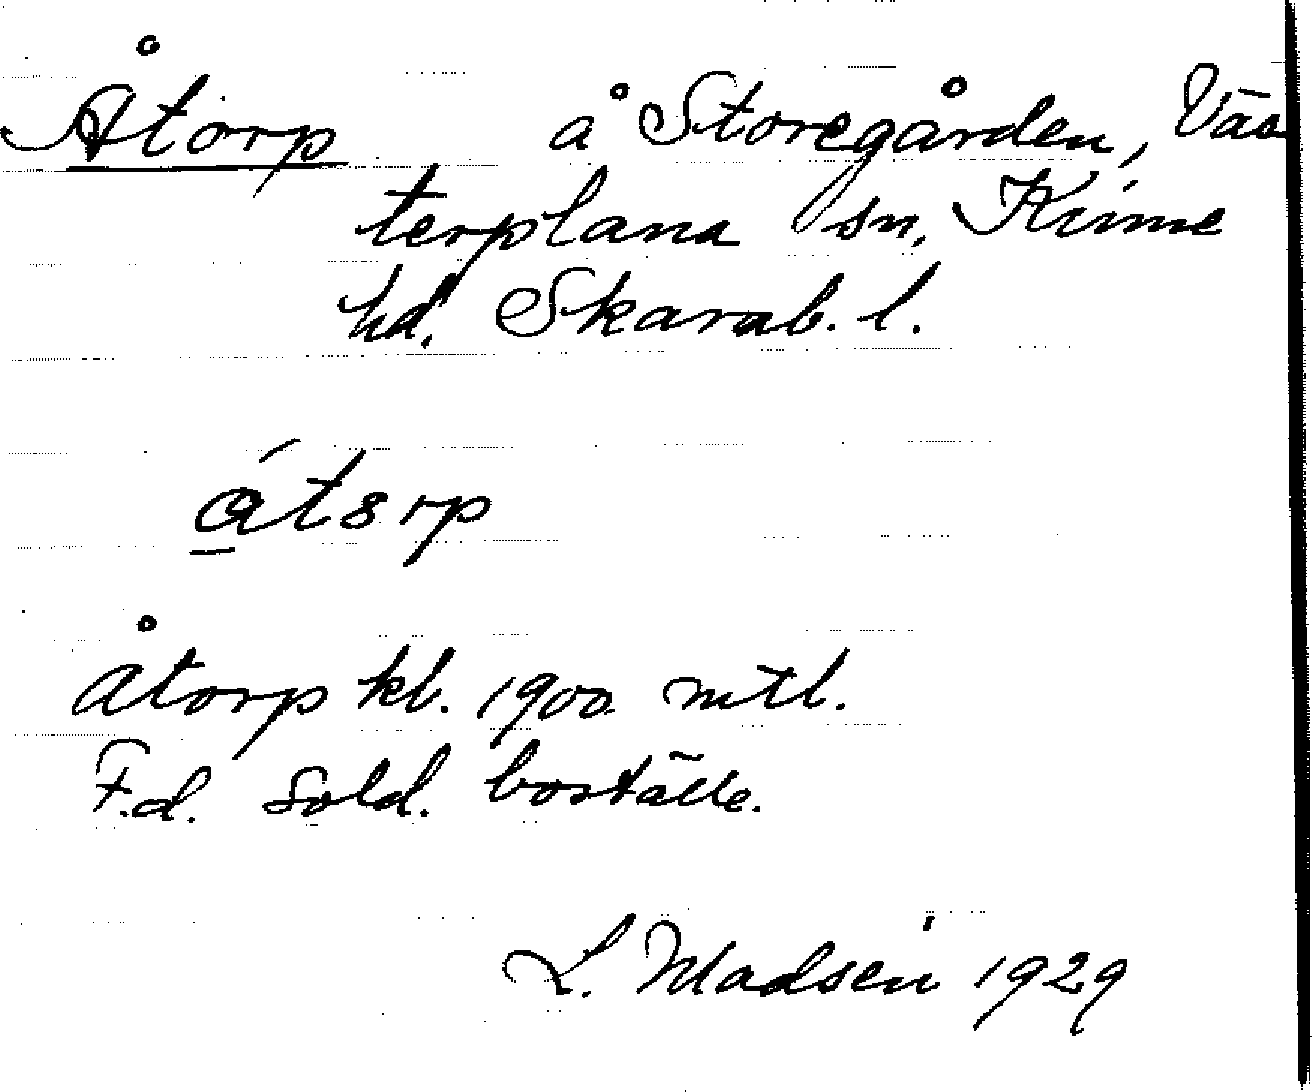 Åtorp å Storegården, Väs
terplana sn, Kinne
hd. Skarab. l.
át8rp
Åtorp kb. 1900 mtl.
F.d. sold. boställe.
L. Madsen 1929